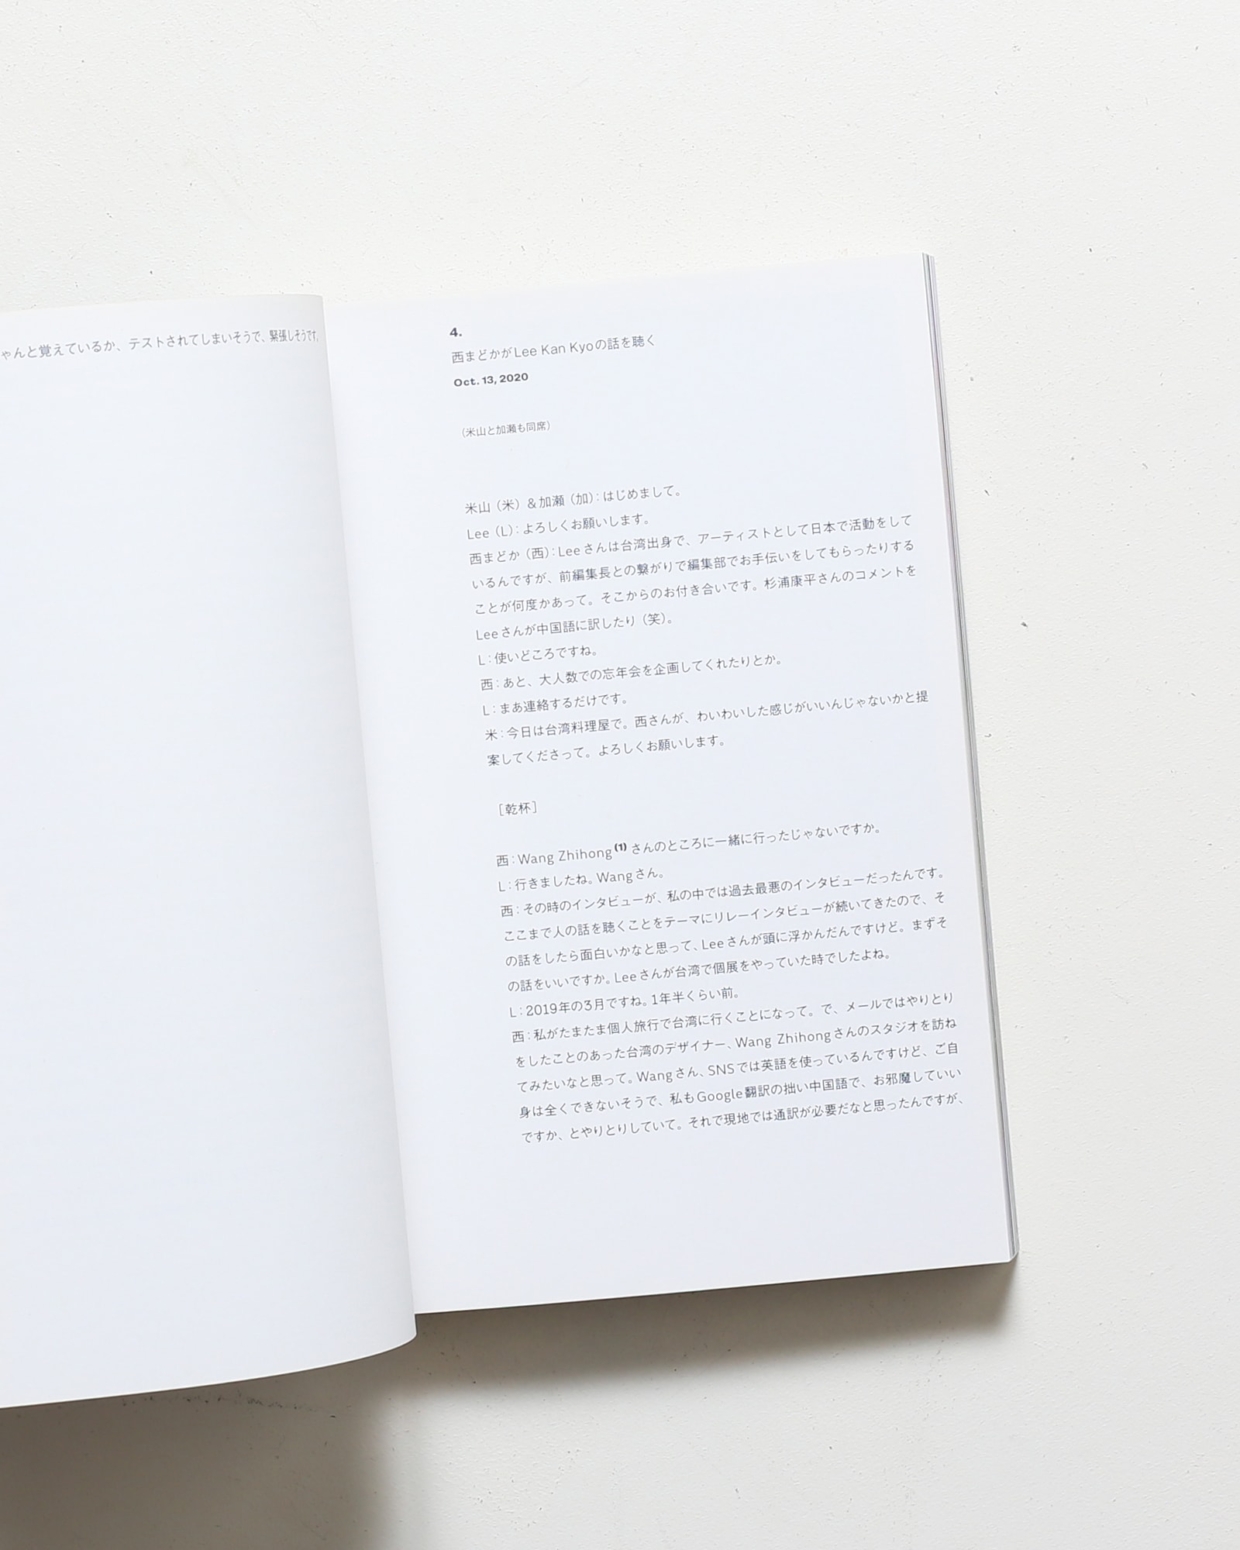 ゃんと覚えているか、テストされてしまいそうで、緊張しそうです。
4.
西まどかがLee Kan Kyoの話を聴く
Oct. 13, 2020
（米山と加瀬も同席）
米山（米）＆加瀬（加）：はじめまして。
Lee（L）：よろしくお願いします。
西まどか（西）：Leeさんは台湾出身で、アーティストとして日本で活動をして
いるんですが、前編集長との繋がりで編集部でお手伝いをしてもらったりする
ことが何度かあって。そこからのお付き合いです。杉浦康平さんのコメントを
Leeさんが中国語に訳したり（笑）。
L：使いどころですね。
西：あと、大人数での忘年会を企画してくれたりとか。
L：まあ連絡するだけです。
米：今日は台湾料理屋で。西さんが、わいわいした感じがいいんじゃないかと提
案してくださって。よろしくお願いします。
［乾杯］
西：Wang Zhihong(1)さんのところに一緒に行ったじゃないですか。
L：行きましたね。Wangさん。
西：その時のインタビューが、私の中では過去最悪のインタビューだったんです。
ここまで人の話を聴くことをテーマにリレーインタビューが続いてきたので、そ
の話をしたら面白いかなと思って、Leeさんが頭に浮かんだんですけど。まずそ
の話をいいですか。Leeさんが台湾で個展をやっていた時でしたよね。
L：2019年の3月ですね。1年半くらい前。
西：私がたまたま個人旅行で台湾に行くことになって。で、メールではやりとり
をしたことのあった台湾のデザイナー、Wang Zhihongさんのスタジオを訪ね
てみたいなと思って。Wangさん、SNSでは英語を使っているんですけど、ご自
身は全くできないそうで、私もGoogle翻訳の拙い中国語で、お邪魔していい
ですか、とやりとりしていて。それで現地では通訳が必要だなと思ったんですが、